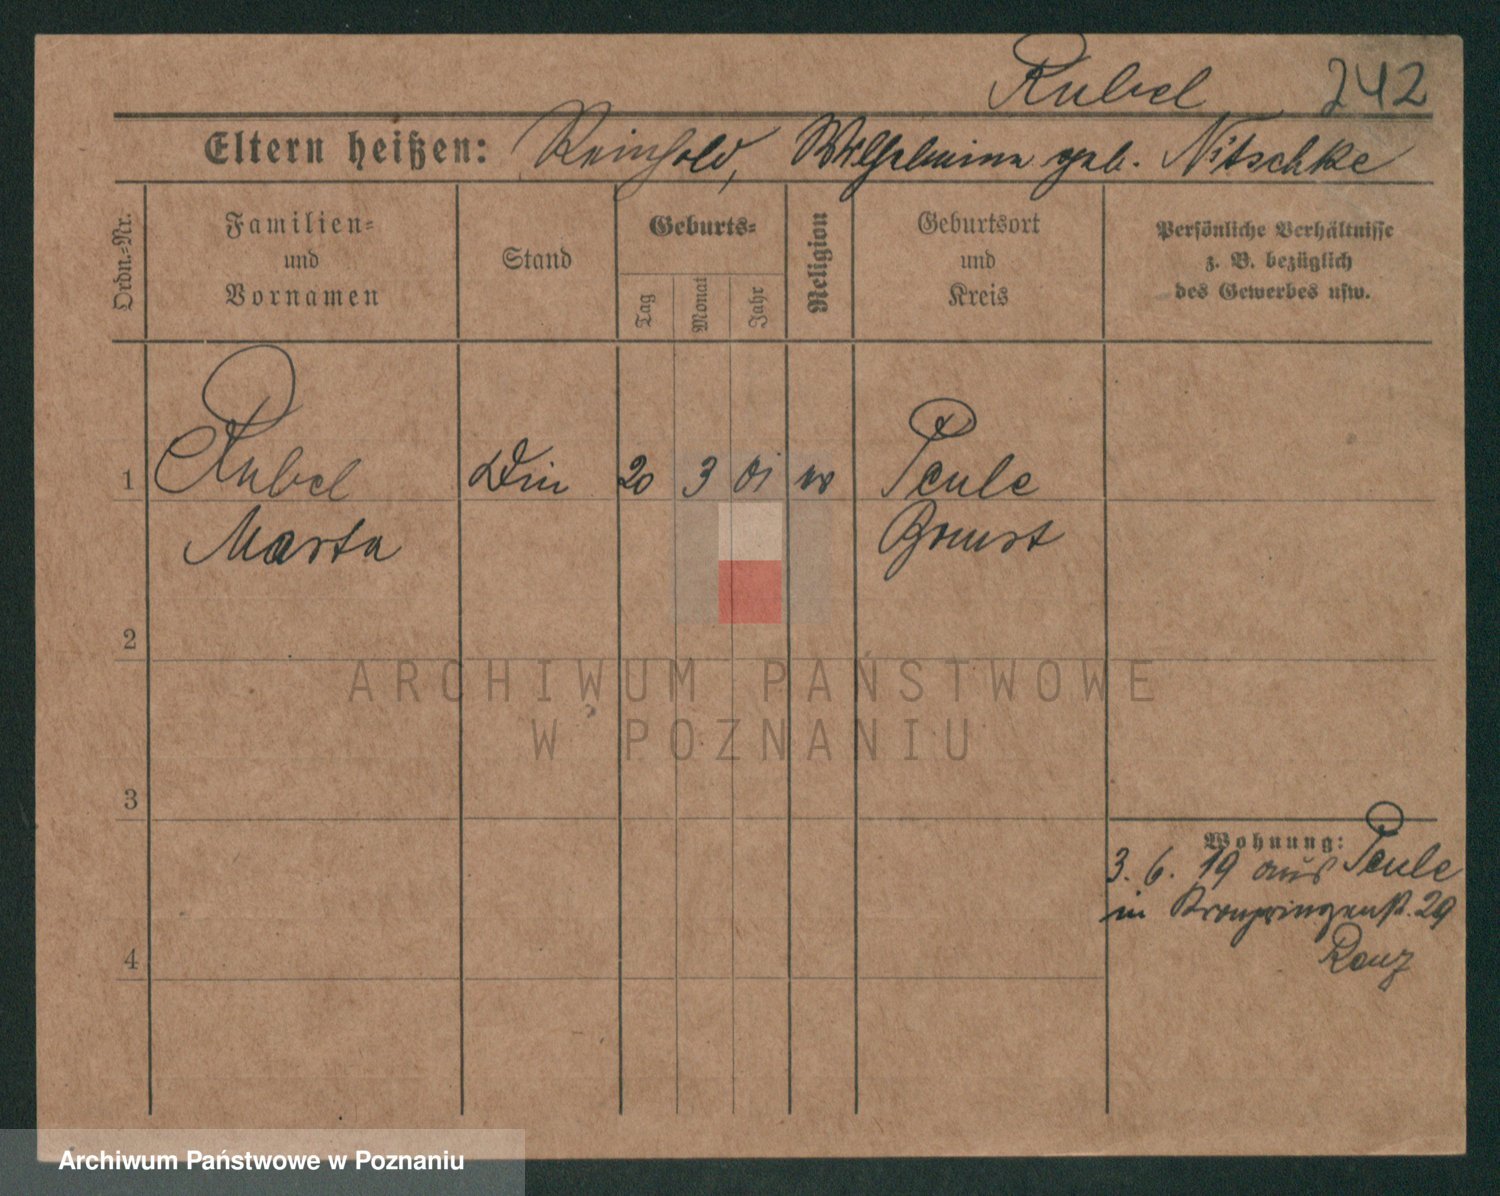 Rubel 242
Eltern heißen: Reinhold, Wilhelmine geb. Nitschke
Ordn.-Nr.
Familien-
und
Vornamen
Stand
Geburts-
Tag
Monat
Jahr
Religion
Geburtsort
und
Kreis
Persönliche Verhältnisse
z. B. bezüglich
des Gewerbes usw.
1 Rubel 20 3 01
Marta
Bomst
2
ARCHIWUM PAŃSTWOWE
W POZNANIU
3
Wohnung:
3. 6. 19 aus
in Kronprinzenst. 29
4
Archiwum Państwowe w Poznaniu